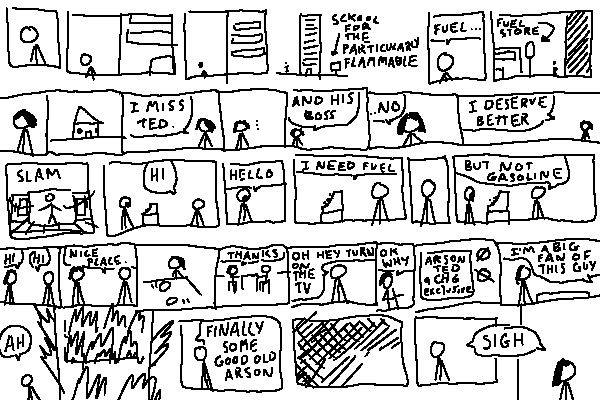 SCHOOL
FOR
THE
PARTICULARLY
FLAMMABLE
FUEL...
FUEL
STORE
I MISS
TED.
...
AND HIS
BOSS
..NO
I DESERVE
BETTER
SLAM
HI
HELLO
I NEED FUEL
BUT NOT
GASOLINE
HI
HI
NICE
PLACE.
THANKS
OH HEY TURN
ON
THE
TV
OK
WHY
ARSON
TED
@CH6
EXCLUSIVE
I'M A BIG
FAN OF
THIS GUY
AH
FINALLY
SOME
GOOD OLD
ARSON
SIGH